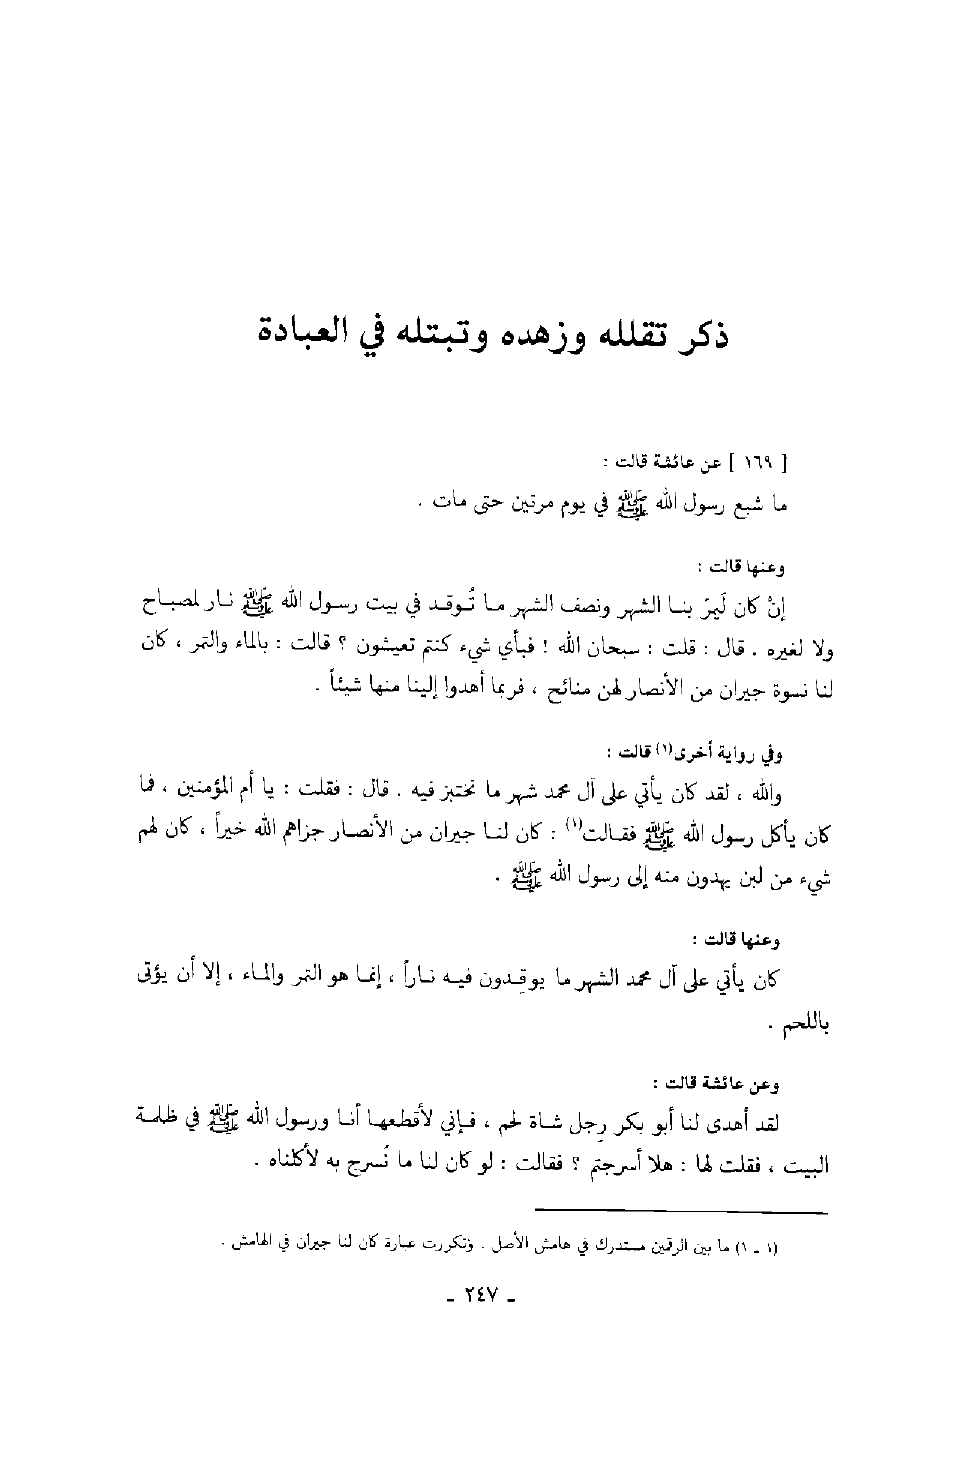 ذكر تقلله وزهده وتبتله في العبادة
[ ١٦٩ ] عن عائشة قالت :
ما شبع رسول الله ﷺ في يوم مرتين حتى مات .
وعنها قالت :
إنْ كان لَيمرّ بنا الشهر ونصف الشهر ما تُوقد في بيت رسول الله ﷺ نار لمصباح
ولا لغيره . قال : قلت : سبحان الله ! فبأي شيء كنتم تعيشون ؟ قالت : بالماء والتمر ، كان
لنا نسوة جيران من الأنصار لهن منائح ، فربما أهدوا إلينا منها شيئاً .
وفي رواية أخرى(١) قالت :
والله ، لقد كان يأتي على آل محمد شهر ما نختبز فيه . قال : فقلت : يا أم المؤمنين ، فما
كان يأكل رسول الله ﷺ فقالت(١) : كان لنا جيران من الأنصار جزاهم الله خيراً ، كان لهم
شيء من لبن يهدون منه إلى رسول الله ﷺ .
وعنها قالت :
كان يأتي على آل محمد الشهر ما يوقِدون فيه ناراً ، إنما هو التمر والماء ، إلا أن يؤتى
باللحم .
وعن عائشة قالت :
لقد أهدى لنا أبو بكر رِجل شاة لحم ، فإني لأقطعها أنا ورسول الله ﷺ في ظلمة
البيت ، فقلت لها : هلا أسرجتم ؟ فقالت : لو كان لنا ما نُسرج به لأكلناه .
(١ - ١) ما بين الرقمين مستدرك في هامش الأصل . وتكررت عبارة كان لنا جيران في الهامش .
- ٢٤٧ -